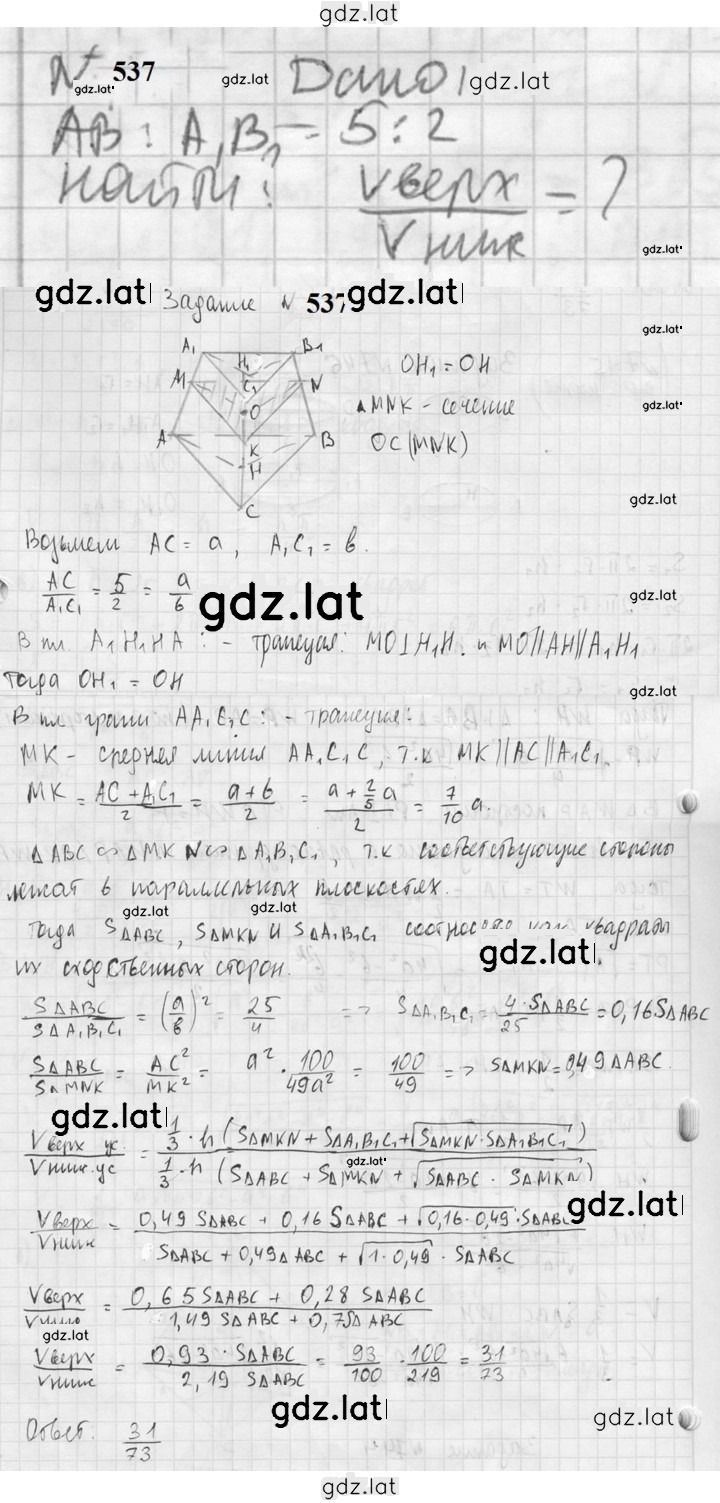 gdz.lat
N 537 gdz.lat Дано gdz.lat
gdz.lat
AB : A₁B₁ = 5 : 2
Найти: Vверх/Vниж = ?
gdz.lat
gdz.lat Задание N 537 gdz.lat
gdz.lat
A₁ H₁ B₁ OH₁ = OH
M C₁ N ΔMNK - сечение gdz.lat
O
A K B O⊂(MNK)
H
C gdz.lat
Возьмем AC = a, A₁C₁ = b.
AC/A₁C₁ = 5/2 = a/b gdz.lat gdz.lat
В пл. A₁H₁HA : - трапеция: MO⊥H₁H. и MO||AH||A₁H₁
Тогда OH₁ = OH
В пл грани AA₁C₁C : - трапеция:
MK - средняя линия AA₁C₁C, т.к MK||AC||A₁C₁.
MK = (AC + A₁C₁)/2 = (a+b)/2 = (a + 2/5 a)/2 = 7/10 a.
ΔABC ∽ ΔMKN ∽ ΔA₁B₁C₁, т.к соответствующие стороны
лежат в параллельных плоскостях.
gdz.lat gdz.lat
Тогда SΔABC, SΔMKN и SΔA₁B₁C₁ квадраты
gdz.lat
их сходственных сторон.
SΔABC/SΔA₁B₁C₁ = (a/b)² = 25/4 => SΔA₁B₁C₁ = 4·SΔABC/25 = 0,16SΔABC
SΔABC/SΔMNK = AC²/MK² = a² · 100/49a² = 100/49 => SΔMKN = 0,49ΔABC.
gdz.lat
Vверх ус./Vниж.ус = 1/3·h(SΔMKN + SΔA₁B₁C₁ + √SΔMKN·SΔA₁B₁C₁)/1/3·h(SΔABC + SΔMKN + √SΔABC · SΔMKN)
gdz.lat
gdz.lat
Vверх/Vниж = 0,49 SΔABC + 0,16 SΔABC + √0,16·0,49·SΔABC/SΔABC + 0,49ΔABC + √1·0,49 · SΔABC
Vверх = 0,65SΔABC + 0,28 SΔABC/1,49 SΔABC + 0,7SΔABC
gdz.lat
Vверх/Vниж = 0,93·SΔABC/2,19 SΔABC = 93/100 · 100/219 = 31/73
gdz.lat
gdz.lat
Ответ: 31/73
gdz.lat